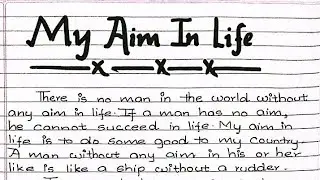 My Aim In Life
There is no man in the world without
any aim in life. If a man has no aim,
he cannot succeed in life. My aim in
life is to do some good to my country.
A man without any aim in his or her
like is like a ship without a rudder.